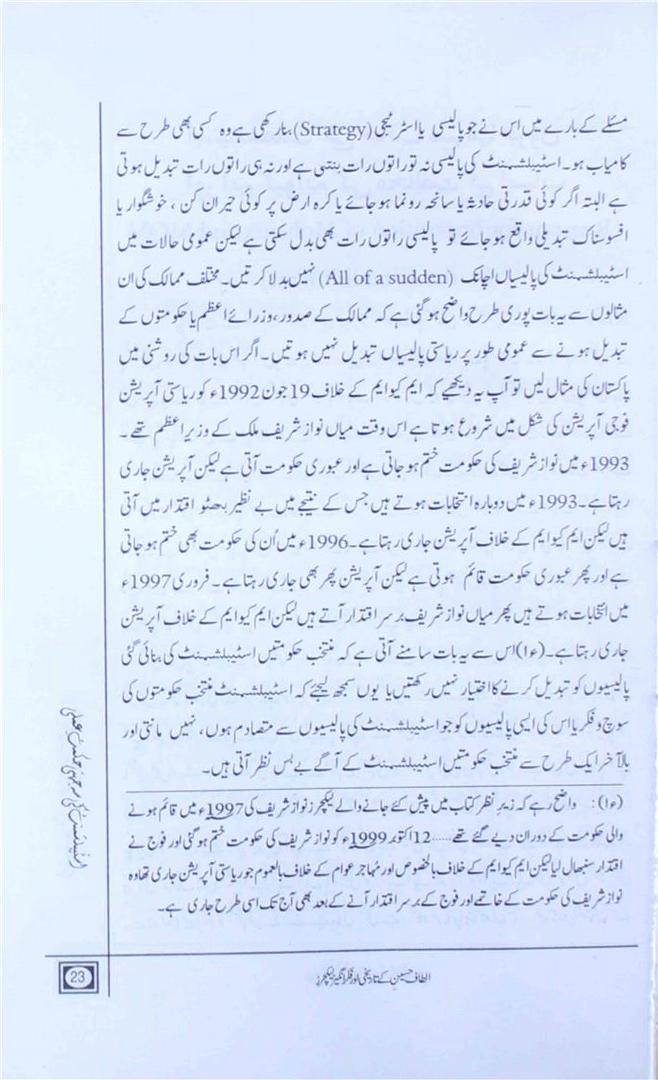 مسئلے کے بارے میں اس نے جو پالیسی یا اسٹریٹجی (Strategy) بنا رکھی ہے وہ کسی بھی طرح سے
کامیاب ہو۔ اسٹیبلشمنٹ کی پالیسی نہ تو راتوں رات بنتی ہے اور نہ ہی راتوں رات تبدیل ہوتی
ہے البتہ اگر کوئی قدرتی حادثہ یا سانحہ رونما ہو جائے یا کرہ ارض پر کوئی حیران کن ، خوشگوار یا
افسوسناک تبدیلی واقع ہو جائے تو پالیسی راتوں رات بھی بدل سکتی ہے لیکن عمومی حالات میں
اسٹیبلشمنٹ کی پالیسیاں اچانک (All of a sudden) نہیں بدلا کرتیں۔ مختلف ممالک کی ان
مثالوں سے یہ بات پوری طرح واضح ہو گئی ہے کہ ممالک کے صدور، وزرائے اعظم یا حکومتوں کے
تبدیل ہونے سے عمومی طور پر ریاستی پالیسیاں تبدیل نہیں ہوتیں۔ اگر اس بات کی روشنی میں
پاکستان کی مثال لیں تو آپ یہ دیکھیے کہ ایم کیو ایم کے خلاف 19 جون 1992ء کو ریاستی آپریشن
فوجی آپریشن کی شکل میں شروع ہوتا ہے اس وقت میاں نواز شریف ملک کے وزیر اعظم تھے ۔
1993ء میں نواز شریف کی حکومت ختم ہو جاتی ہے اور عبوری حکومت آتی ہے لیکن آپریشن جاری
رہتا ہے۔ 1993ء میں دوبارہ انتخابات ہوتے ہیں جس کے نتیجے میں بے نظیر بھٹو اقتدار میں آتی
ہیں لیکن ایم کیو ایم کے خلاف آپریشن جاری رہتا ہے۔ 1996ء میں اُن کی حکومت بھی ختم ہو جاتی
ہے اور پھر عبوری حکومت قائم ہوتی ہے لیکن آپریشن پھر بھی جاری رہتا ہے۔ فروری 1997ء
میں انتخابات ہوتے ہیں پھر میاں نواز شریف برسر اقتدار آتے ہیں لیکن ایم کیو ایم کے خلاف آپریشن
جاری رہتا ہے۔ (ء۱) اس سے یہ بات سامنے آتی ہے کہ منتخب حکومتیں اسٹیبلشمنٹ کی بنائی گئی
پالیسیوں کو تبدیل کرنے کا اختیار نہیں رکھتیں یا یوں سمجھ لیجئے کہ اسٹیبلشمنٹ منتخب حکومتوں کی
سوچ و فکر یا اس کی ایسی پالیسیوں کو جو اسٹیبلشمنٹ کی پالیسیوں سے متصادم ہوں، نہیں مانتی اور
بالآخر ایک طرح سے منتخب حکومتیں اسٹیبلشمنٹ کے آگے بے بس نظر آتی ہیں۔
(ء۱): واضح رہے کہ زیرِ نظر کتاب میں پیش کئے جانے والے لیکچرز نواز شریف کی 1997ء میں قائم ہونے
والی حکومت کے دوران دیے گئے تھے..... 12 اکتوبر 1999ء کو نواز شریف کی حکومت ختم ہو گئی اور فوج نے
اقتدار سنبھال لیا لیکن ایم کیو ایم کے خلاف بالخصوص اور مہاجر عوام کے خلاف بالعموم جو ریاستی آپریشن جاری تھا وہ
نواز شریف کی حکومت کے خاتمے اور فوج کے برسر اقتدار آنے کے بعد بھی آج تک اسی طرح جاری ہے۔
الطاف حسین کے تاریخی اور فکر انگیز لیکچرز
23